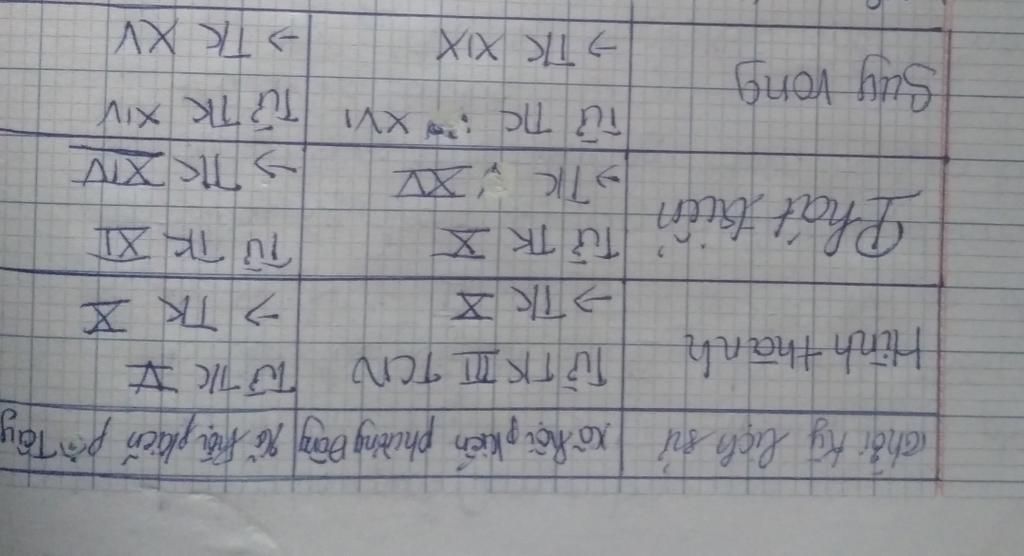 Thời kỳ lịch sử
xã hội pkiến phương Đông
Xã hội pkiến p. Tây
Hình thành
Từ TK III TCN
→ TK X
Từ TK V
→ TK X
Phát triển
Từ TK X
→ TK XV
Từ TK XI
→ TK XIV
Suy vong
Từ TK XVI
→ TK XIX
Từ TK XIV
→ TK XV